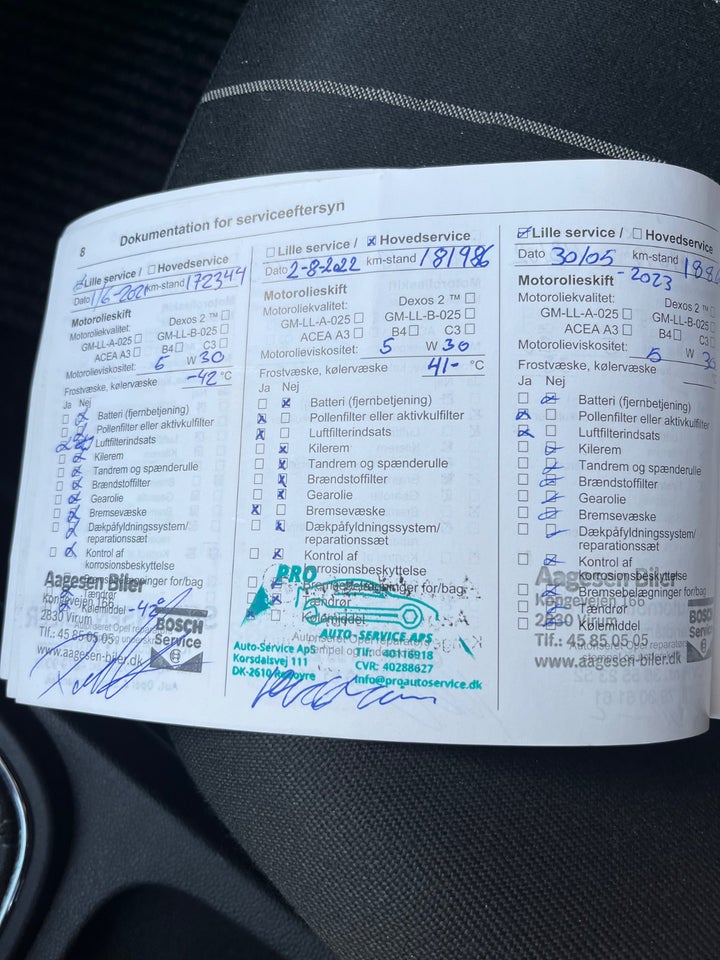 8
Dokumentation for serviceeftersyn
Lille service / Hovedservice
Dato 1/6-2021 km-stand 172344
Motorolieskift
Motoroliekvalitet:
Dexos 2 ™
GM-LL-A-025 GM-LL-B-025
ACEA A3 B4 C3
Motorolieviskositet: 5 W 30
Frostvæske, kølervæske -42 °C
Ja Nej
Batteri (fjernbetjening)
Pollenfilter eller aktivkulfilter
Luftfilterindsats
Kilerem
Tandrem og spænderulle
Brændstoffilter
Gearolie
Bremsevæske
Dækpåfyldningssystem/
reparationssæt
Kontrol af
korrosionsbeskyttelse
Bremsebelægninger for/bag
Tændrør
Kølemiddel -42°
Aagesen Biler
Kongevejen 166
2830 Virum
Tlf.: 45 85 05 05
www.aagesen-biler.dk
BOSCH
Service
Lille service / Hovedservice
Dato 2-8-2022 km-stand 181986
Motorolieskift
Motoroliekvalitet:
Dexos 2 ™
GM-LL-A-025 GM-LL-B-025
ACEA A3 B4 C3
Motorolieviskositet: 5 W 30
Frostvæske, kølervæske 41- °C
Ja Nej
Batteri (fjernbetjening)
Pollenfilter eller aktivkulfilter
Luftfilterindsats
Kilerem
Tandrem og spænderulle
Brændstoffilter
Gearolie
Bremsevæske
Dækpåfyldningssystem/
reparationssæt
Kontrol af
korrosionsbeskyttelse
Bremsebelægninger for/bag
Tændrør
Kølemiddel
PRO
AUTO-SERVICE APS
Auto-Service ApS
Korsdalsvej 111
DK-2610 Rødovre
Tlf: 40116918
CVR: 40288627
Info@proautoservice.dk
Lille service / Hovedservice
Dato 30/05 -2023 km-stand
Motorolieskift
Motoroliekvalitet:
Dexos 2 ™
GM-LL-A-025 GM-LL-B-025
ACEA A3 B4 C3
Motorolieviskositet: 5 W 30
Frostvæske, kølervæske
Ja Nej
Batteri (fjernbetjening)
Pollenfilter eller aktivkulfilter
Luftfilterindsats
Kilerem
Tandrem og spænderulle
Brændstoffilter
Gearolie
Bremsevæske
Dækpåfyldningssystem/
reparationssæt
Kontrol af
korrosionsbeskyttelse
Bremsebelægninger for/bag
Tændrør
Kølemiddel
Aagesen Biler
Kongevejen 166
2830 Virum
Tlf.: 45 85 05 05
www.aagesen-biler.dk
BOSCH
Service